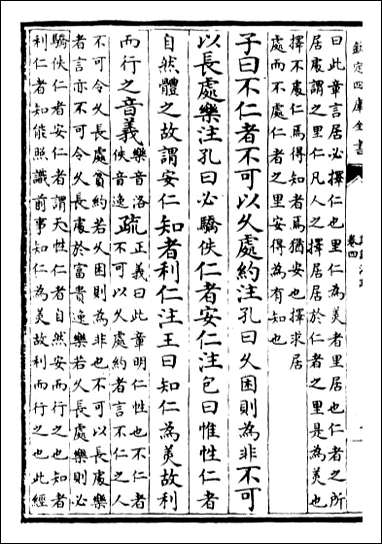 欽定四庫全書
卷四
曰此章言居必擇仁也里仁為美者里居也仁者之所
居處謂之里仁凡人之擇居居於仁者之里是為美也
擇不處仁焉得知者焉猶安也擇求居
處而不處仁者之里安得為有知也
子曰不仁者不可以久處約注孔曰久困則為非不可
以長處樂注孔曰必驕佚仁者安仁注包曰惟性仁者
自然體之故謂安仁知者利仁注王曰知仁為美故利
而行之音義
樂音洛
佚音逸
疏
正義曰此章明仁性也不仁者
不可以久處約者言不仁之人
不可令久長處貧約若久困則為非也不可以長處樂
者言亦不可令久長處於富貴逸樂若久長處樂則必
驕佚仁者安仁者謂天性仁者自然安而行之也知者
利仁者知能照識前事知仁為美故利而行之也此經